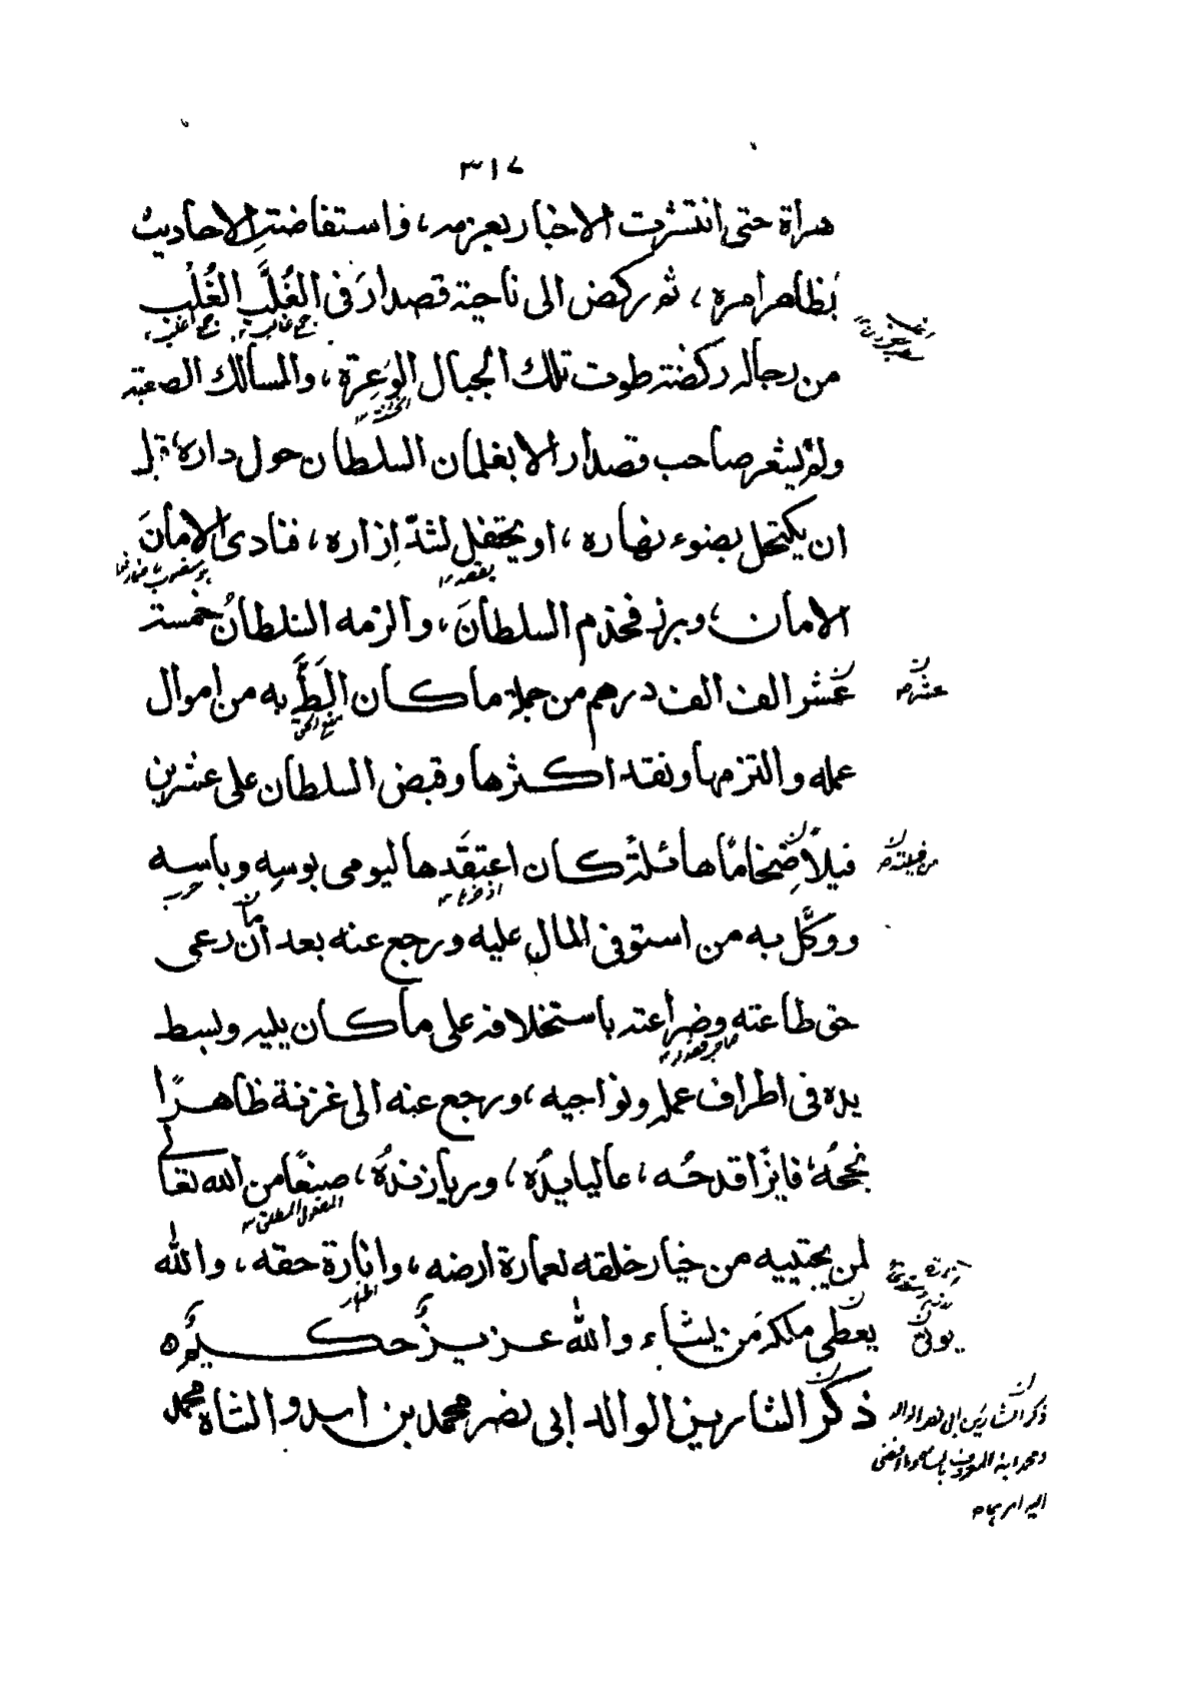 ٣١٧
هراة حتى انتشرت الاخبار بعزمه، واستفاضت الاحاديث
بظاهر امره، ثم ركض الى ناحية قصدار في الغُلَّب الغُلْب
من رجاله ركضة طوت تلك الجبال الوَعِرة، والمسالك الصعبة
ولم يشعر صاحب قصدار الا بغلمان السلطان حول داره، قبل
ان يكتحل بضوء نهاره، او يحتفل لشدّ اِزاره، فنادى الامانَ
الامان، وبرز فخدم السلطانَ، والزمه السلطانُ خمسة
عَشر الف الف درهم من جملة ما كان اَلَطَّ به من اموال
عمله والتزمها ونقد اكثرها وقبض السلطان على عشرين
فيلاً ضِخامًا هائلة كان اعتقَدها ليومى بوسِه وباسِه
ووكَّل به من استوفى المال عليه ورجع عنه بعد اَن رعى
حق طاعته وضراعته باستخلافه على ما كان يليه وبسط
يده فى اطراف عمله ونواحيه، ورجع عنه الى غزنة ظاهرًا
نجحُهُ، فايزًا قدحُه، عاليا يدُه، وريا زندُه، صنعًا من الله تعالى
لمن يجتبيه من خيار خلقه لعمارة ارضه، وانارة حقه، والله
يعطى ملكه مَن يشاء والله عزيزٌ حكيمٌ ه
ذكر الشارين الوالد ابى نصر محمد بن اسد والشاه محمد
عشرة
من فيلته
بقصد
منع الحق
حرب
صاحب قصدار
المفعول المطلق
اظهار
يوتى
ذكر الشارين ابى نصر الوالد